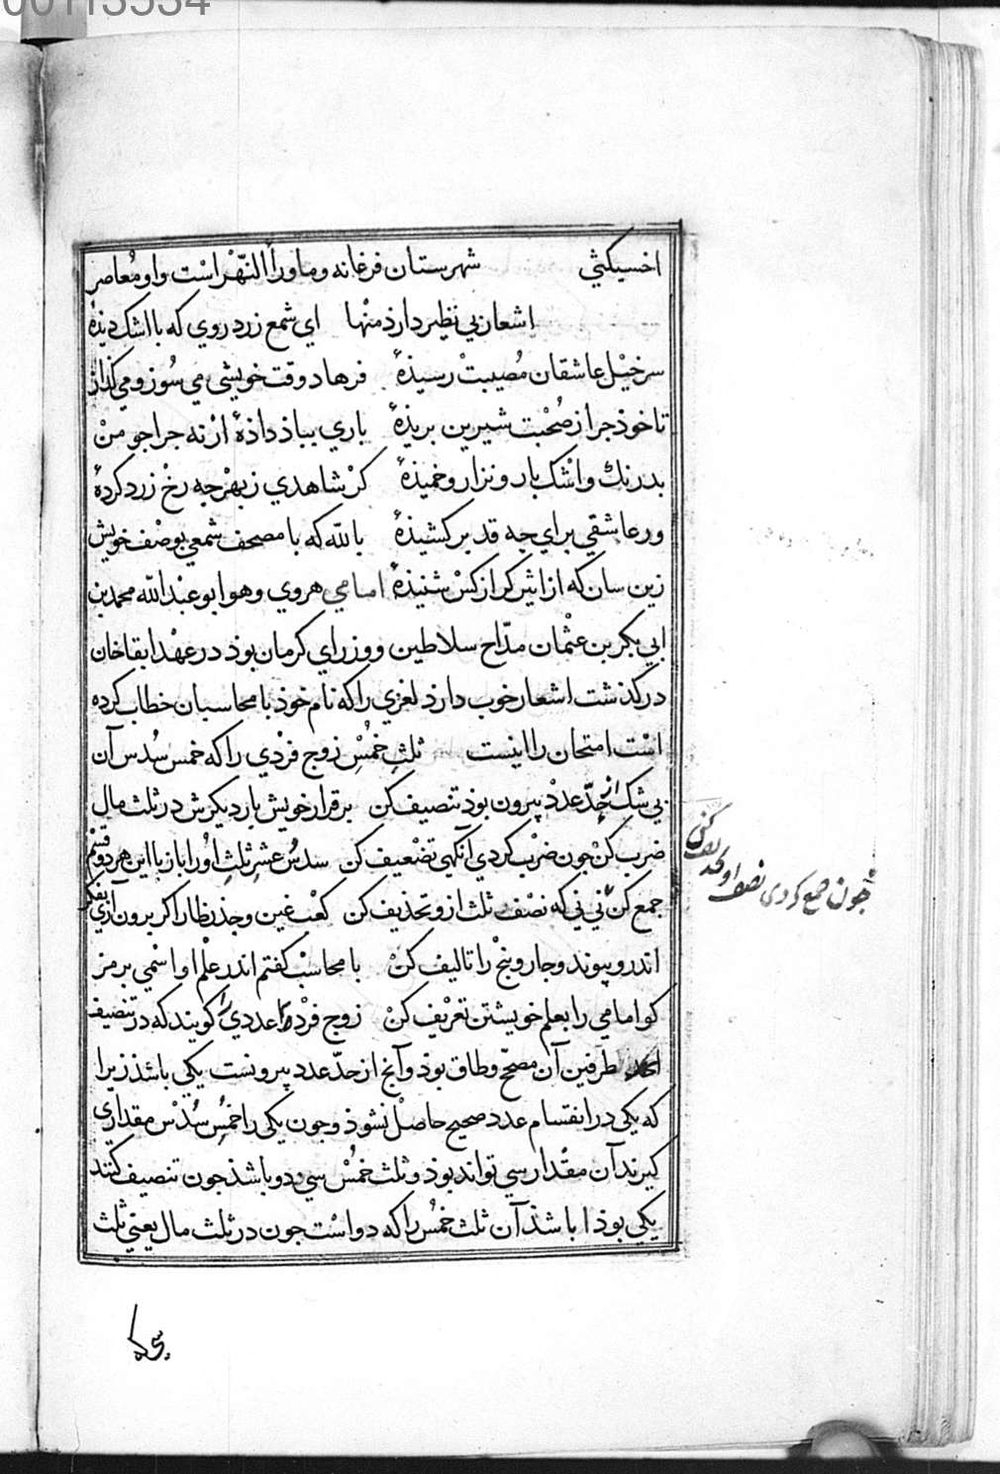 00113534
اخسیکثي شهرستان فرغانه وماورأالنّهر است واو مُعاصر
اشعار بي نظیر دارذ منها اي شمع زرد روي که با اشک دیذهٔ
سر خیل عاشقان مُصیبت رسیذهٔ فرهاد وقت خویشي مي سُوز و مي گذاز
تا خوذ جرا ز صُحْبت شیرین بریذهٔ باري بباذ داذهٔ ارنه جرا جو منْ
بد رنك واشک بار و نزار و خمیذهٔ کر شاهدي ز بهْر جه رخْ زرد کردهٔ
ور عاشقي براي جه قد بر کشیذهٔ بالله که با مصحف شمعي بوصْف خویش
زین سان که از اثیر کر از کسْ شنیذهٔ امامي هروي وهو ابو عبْد الله محمد بن
ابي بکر بن عثْمان مدّاح سلاطین ووزراي کرمان بوذ در عهْد ابقاخان
در کذشت اشعار خوب دارذ لغزي را که نام خوذ با محاسبان خطاب کرده
اسْت امتحان را اینست ثلثِ خمُسْ زوج فرْدي را که خمس سُدس آن
بي شک از حدّ عددْ بیرون بوذ تنصیف کن بر قرار خویش بار دیکرش در ثلث مال
ضرب کنْ جون ضربْ کردي آنکهي تضْعیف کن سدسُ عشرِ ثلثِ اوُرا باز با این هر دو قسْم
جمع کنْ ني ني که نصْف ثلث ازو تحذیف کن کعْب غین وجذر ظا را کر برون آري بفکر
اندرو پیوند وجار وپنجْ را تالیف کنْ با محاسبْ کفتم اندر علْم او اسْمي برمز
کو امامي را بعلم خویشتن تعْریف کنْ زوج فرْد عددي را کویند که در تنصیف
طرفین آن مصحّ وطاق بوذ وآنج از حدّ عدد بیرونست یکي باشذ زیرا
که یکي در انقسام عدد صحیح حاصلْ نشوذ وجون یکي را خمُسِ سُدُسْ مقداری
کیرند آن مقْدار سي تواند بوذ وثلث خمُسْ سي دو باشذ جون تنصیف کنند
یکي بوذ ا باشذ آن ثلث خمُسْ را که دو اسْت جون در ثلث مال یعني ثلث
جون جمع کردی نصف او
یکي